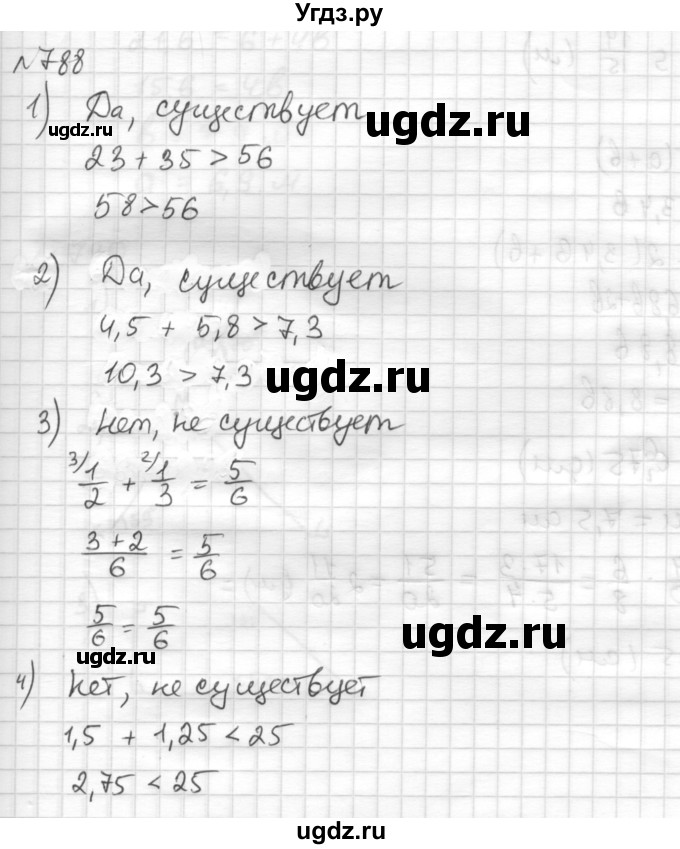 Угдз.ру
№788
1) Да, существует
ugdz.ru
ugdz.ru
23 + 35 > 56
58 > 56
2) Да, существует
ugdz.ru
4,5 + 5,8 > 7,3
10,3 > 7,3
ugdz.ru
3) Нет, не существует
3/ 1/2 + 2/ 1/3 = 5/6
(3 + 2)/6 = 5/6
5/6 = 5/6
ugdz.ru
ugdz.ru
4) Нет, не существует
1,5 + 1,25 < 25
ugdz.ru
2,75 < 25
ugdz.ru